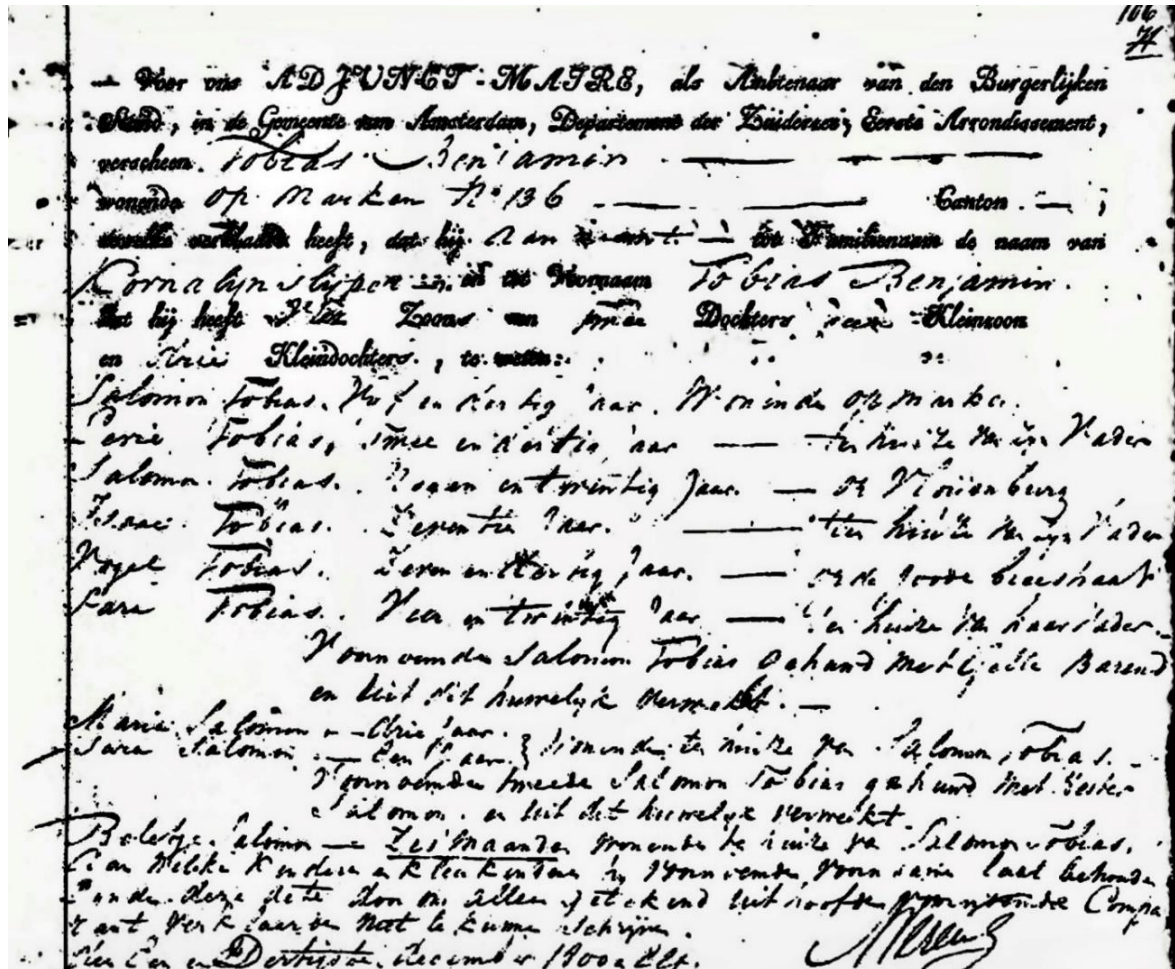 106
71
Voor ons ADJUNCT-MAIRE, als Ambtenaar van den Burgerlijken
Stand, in de Gemeente van Amsterdam, Departement der Zuiderzee, Eerste Arrondissement,
verscheen Tobias Benjamin
wonende op Marken No 136 Canton ;
dewelke verklaard heeft, dat hij tot Familienaam de naam van
Cornalijnslijper en tot Voornaam Tobias Benjamin.
Dat hij heeft Zoons en Dochters Kleinzoon
en drie Kleindochters, te weten:
Salomon Tobias. Vijf en dertig Jaar. Wonende op marken.
Tobias, twee en dertig Jaar — ten huize van zijn Vader
Salomon Tobias. Negen en twintig Jaar. — op Vloienburg
Isaac Tobias. Zeventien Jaar. — ten huize van zijn Vader
Vogel Tobias. Zeven en dertig Jaar. — op de Joode breestraat
Sara Tobias. Vier en twintig Jaar — ten huize van haar Vader
Voornoemden Salomon Tobias gehuwd met Barend
en uit dit huwelijk verwekt. —
Maria Salomon — drie Jaar.
Sara Salomon — Een Jaar } wonende ten huize van Salomon Tobias.
Voornoemden tweede Salomon Tobias gehuwd met Hester
Salomon. en uit dit huwelijk verwekt
Salomon — Zes maanden wonende te huize van Salomon Tobias.
Aan welke kinderen en kleinkinderen hij voornoemden voornamen laat behouden
deze acte door ons alleen getekend uit hoofde Compa
rant verklaarde niet te kunnen schrijven.
den Een en Dertigste december 1800 elf.